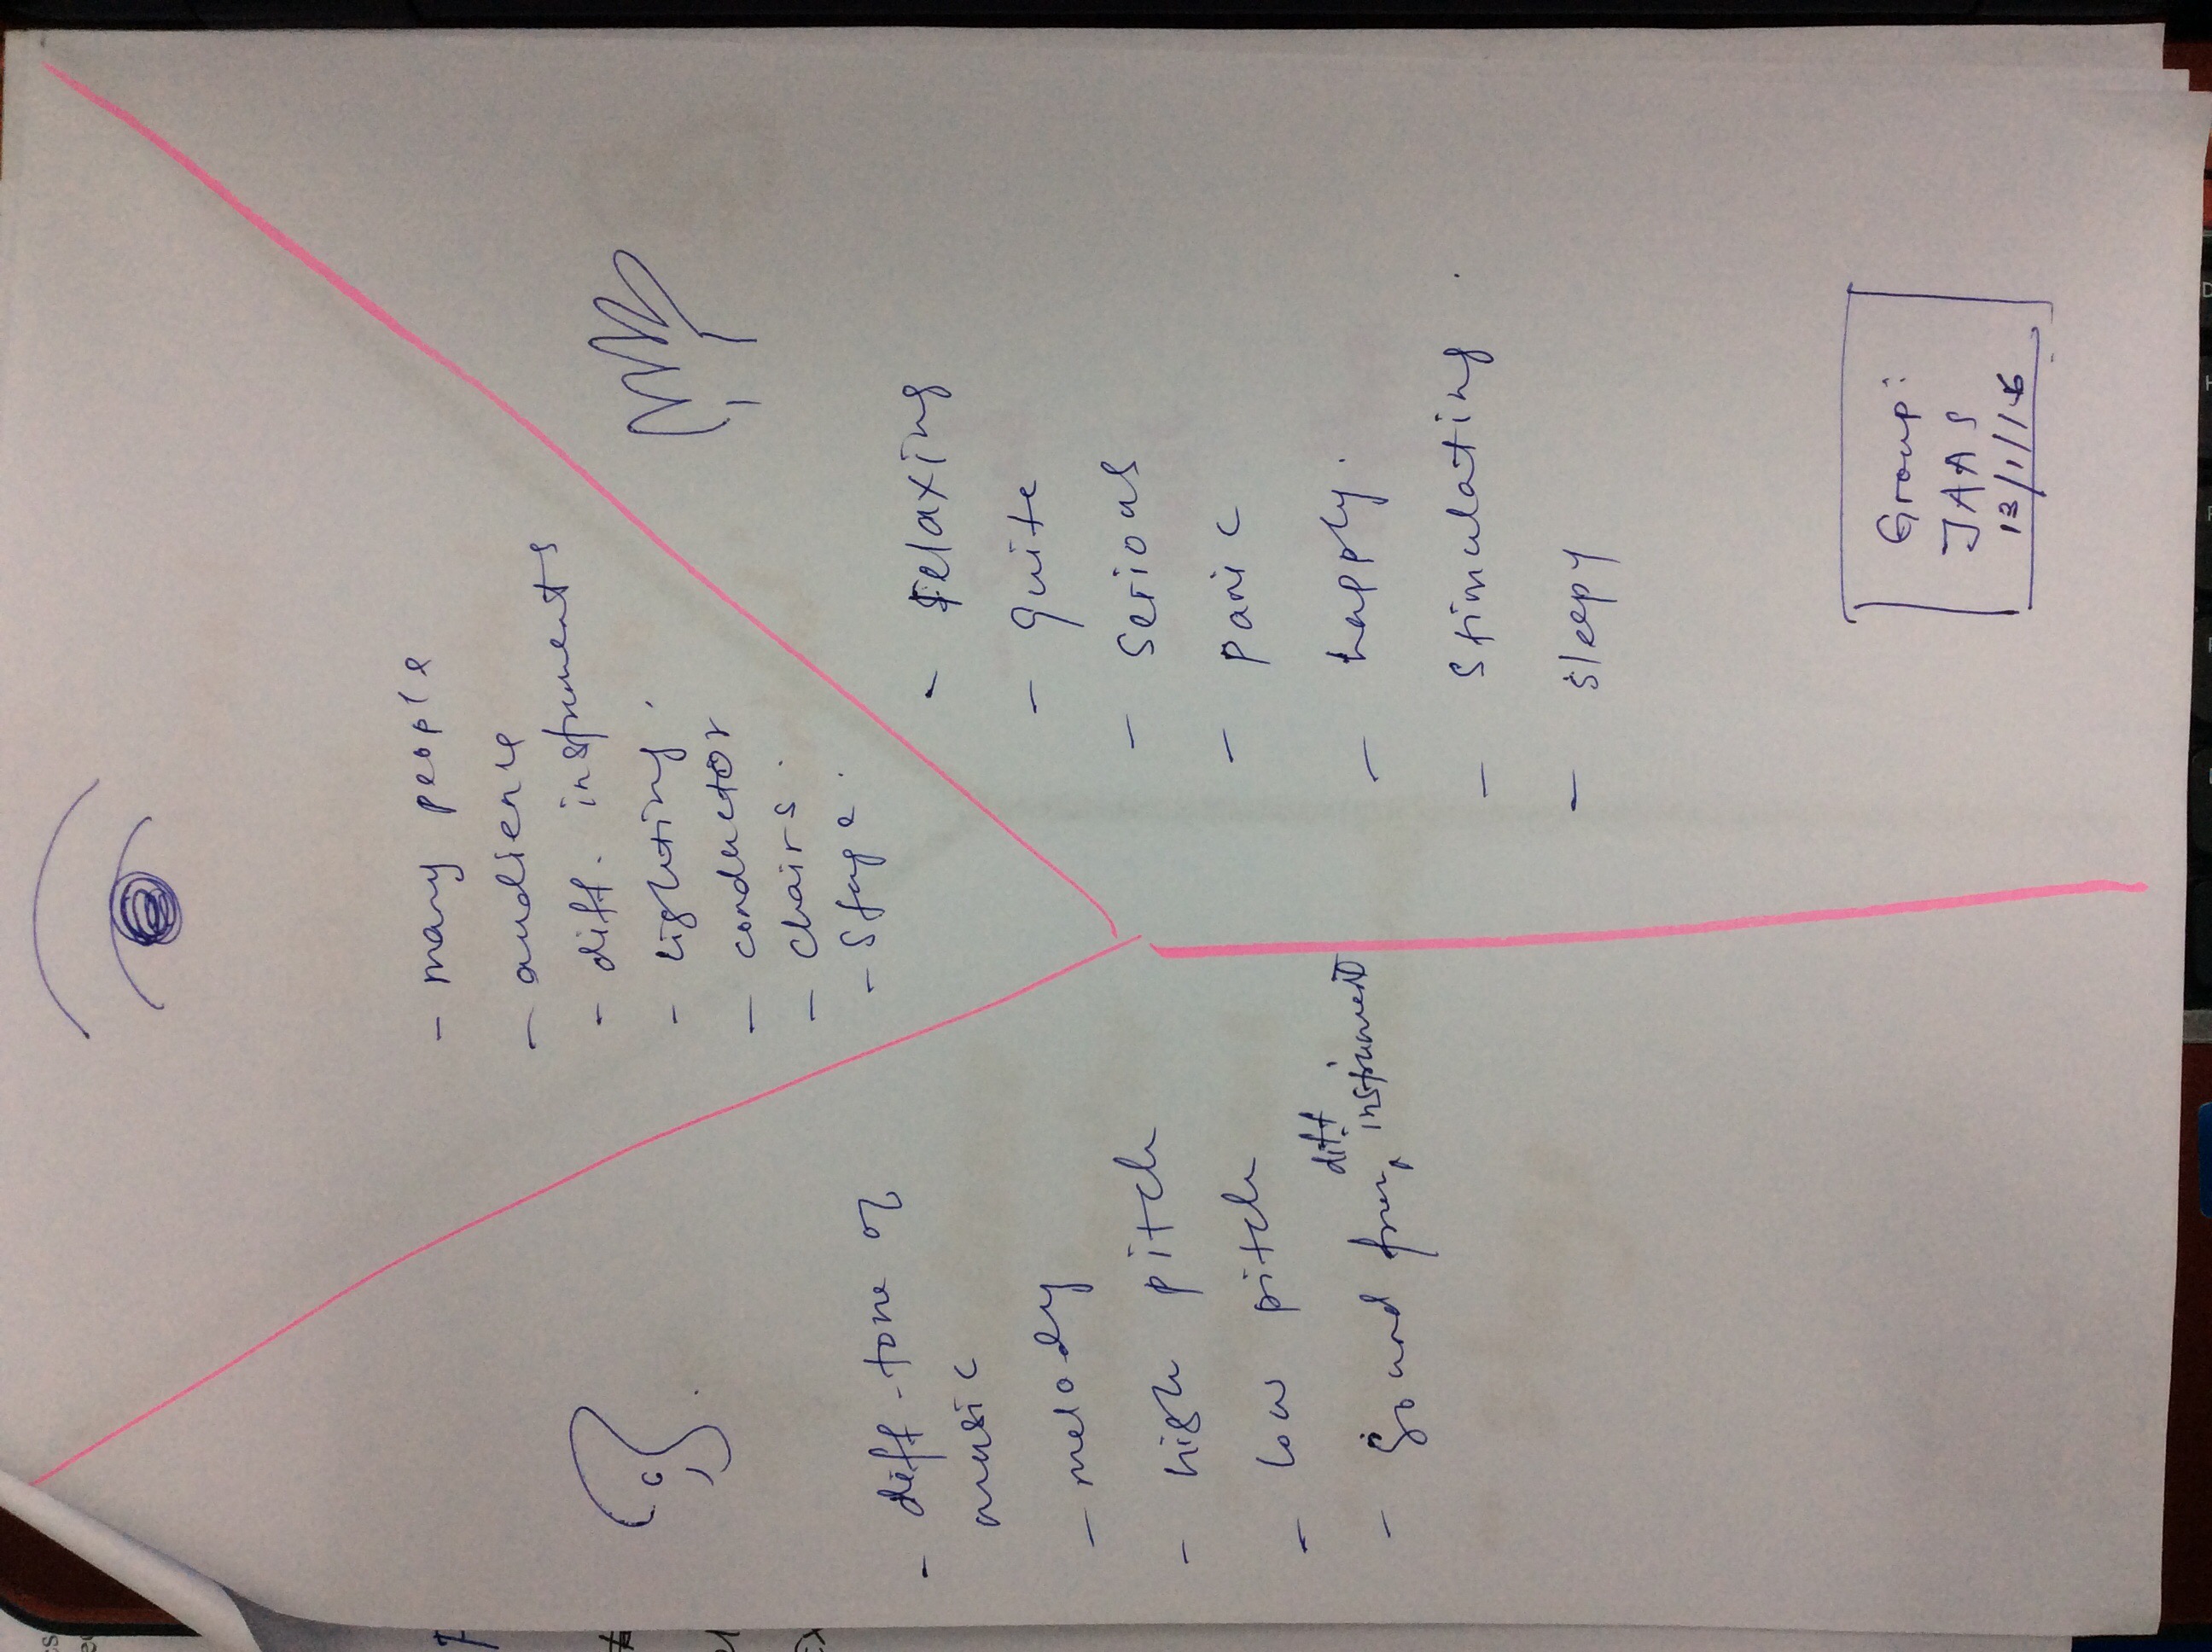 - many people
- audience
- diff. instruments
- lighting.
- conductor
- chairs.
- stage.
- diff-tone of
music
- melody
- high pitch
- low pitch
diff
- sound from instrument
- relaxing
- quite
- serious
- panic
- happy.
- stimulating.
- sleepy
Group:
JAAS
13/1/16